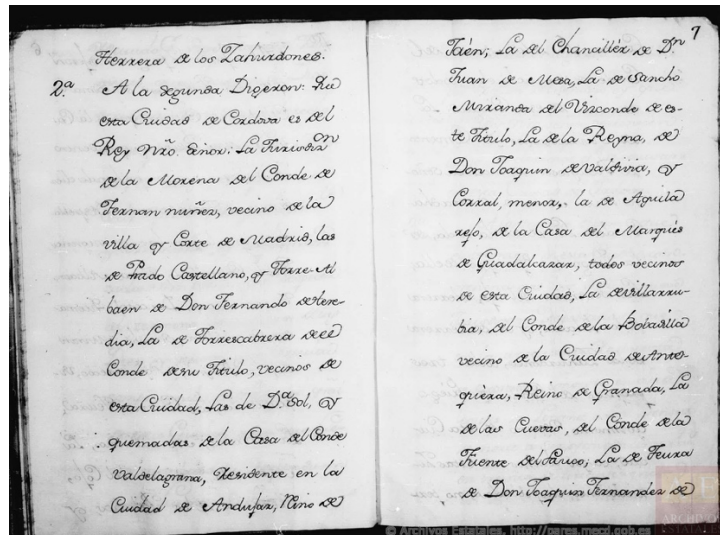 Herrera de los Zahurdones.
2.ª A la segunda Digeron: Que
esta Ciudad de Cordova es del
Rey Nrõ. Señor: La Jurisdizⁿ
de la Morena del Conde de
Fernan nuñez, vecino de la
villa y Corte de Madrid, las
de Prado Castellano, y Torre Al
baen de Don Fernando de Here-
dia, La de Torrescabrera de el
Conde de su Titulo, vecinos de
esta Ciudad, Las de D.ª Sol, y
quemadas de la Casa del Conde
Valdelagrana, Residente en la
Ciudad de Andujar, Rno de
7
Jaén; La del Chancillér de D.ⁿ
Juan de Mesa, La de Sancho
Miranda del Vizconde de es-
te Titulo, La de la Reyna, de
Don Joaquin de Valdivia, y
Corral, menor, la de Aguila
rejo, de la Casa del Marqués
de Guadalcazar, todos vecinos
de esta Ciudad, La de Villarru-
bia, del Conde de la Bobadilla
vecino de la Ciudad de Ante-
quèra, Reino de Granada, La
de las Cuevas, del Conde de la
Fuente del Sauco; La de
de Don Joaquin Fernandez de
© Archivos Estatales, http://pares.mecd.gob.es